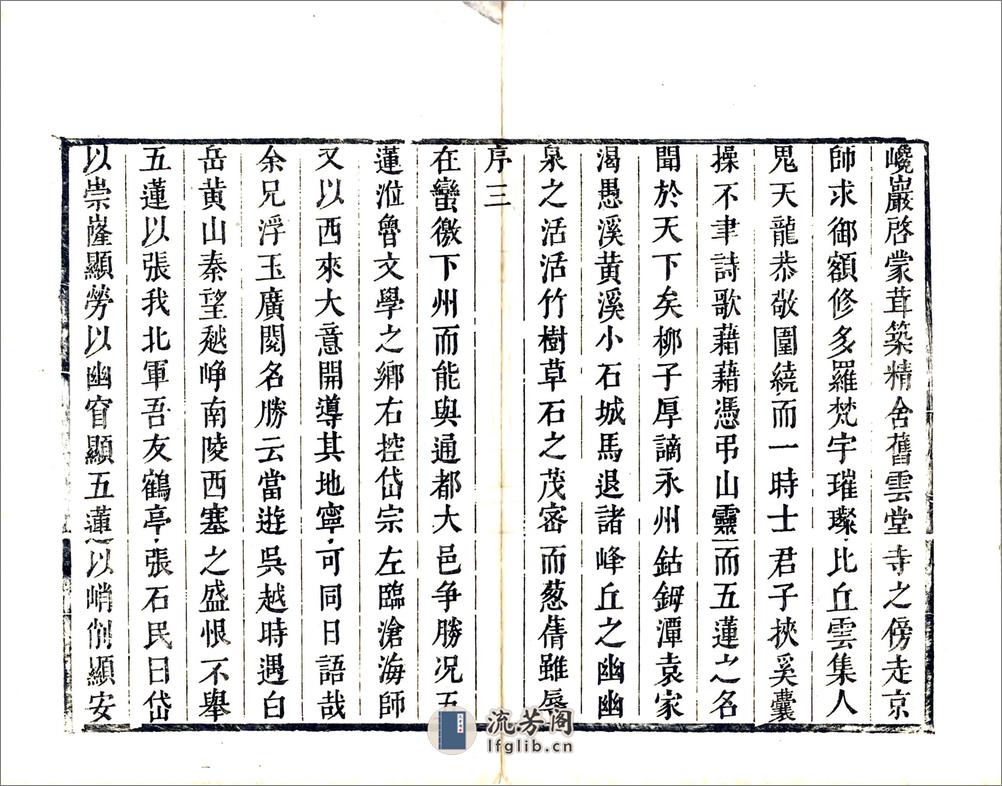 巉巖啓蒙茸築精舍舊雲堂寺之傍走京
師求御額修多羅梵宇璀璨比丘雲集人
鬼天龍恭敬圍繞而一時士君子挾奚囊
操不聿詩歌藉藉憑弔山靈而五蓮之名
聞於天下矣栁子厚謫永州鈷鉧潭袁家
渴愚溪黃溪小石城馬退諸峰丘之幽幽
泉之活活竹樹草石之茂密而葱蒨雖辱
序三
在蠻徼下州而能與通都大邑争勝况五
蓮涖魯文學之鄉右控岱宗左臨滄海師
又以西來大意開導其地寧可同日語哉
余兄浮玉廣閱名勝云當遊吳越時遇白
岳黃山秦望越崢南陵西塞之盛恨不舉
五蓮以張我北軍吾友鶴亭張石民曰岱
以崇隆顯勞以幽窅顯五蓮以峭削顯安
流芳阁
lfglib.cn